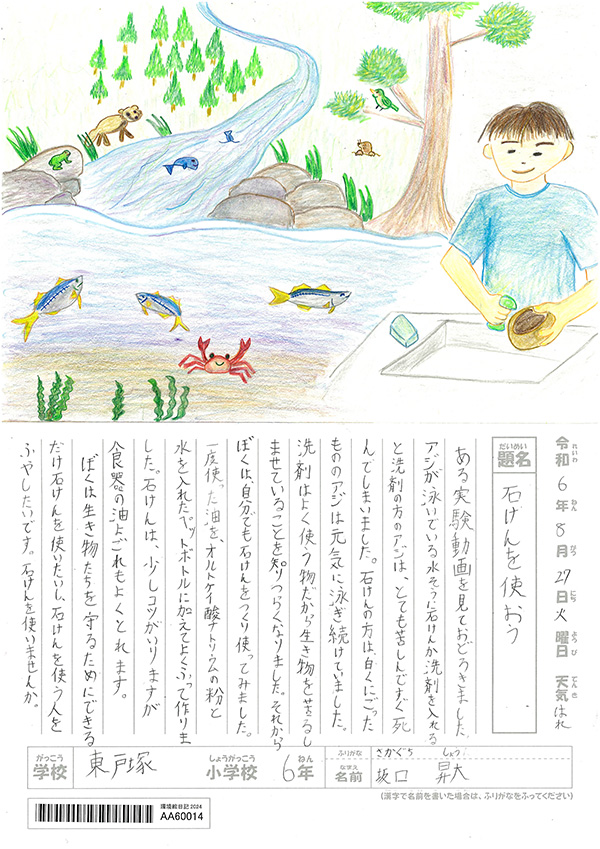 令和6年8月27日火曜日 天気はれ
れいわ ねん がつ にち ようび てんき
だいめい
題名 石けんを使おう
ある実験動画を見ておどろきました。
アジが泳いでいる水そうに石けんか洗剤を入れる
と洗剤の方のアジは、とても苦しんですぐ死
んでしまいました。石けんの方は、白くにごった
もののアジは元気に泳ぎ続けていました。
洗剤はよく使う物だから生き物を苦るし
ませていることを知りつらくなりました。それから
ぼくは、自分でも石けんをつくり使ってみました。
一度使った油を、オルトケイ酸ナトリウムの粉と
水を入れたペットボトルに加えてよくふって作りま
した。石けんは、少しコツがいりますが
食器の油よごれもよくとれます。
ぼくは生き物たちを守るためにできる
だけ石けんを使いたいし、石けんを使う人を
ふやしたいです。石けんを使いませんか。
がっこう
学校 東戸塚
しょうがっこう
小学校 6年
ねん
ふりがな さかぐち しょう
なまえ
名前 坂口 昇大
(漢字で名前を書いた場合は、ふりがなをふってください)
環境絵日記2024
AA60014